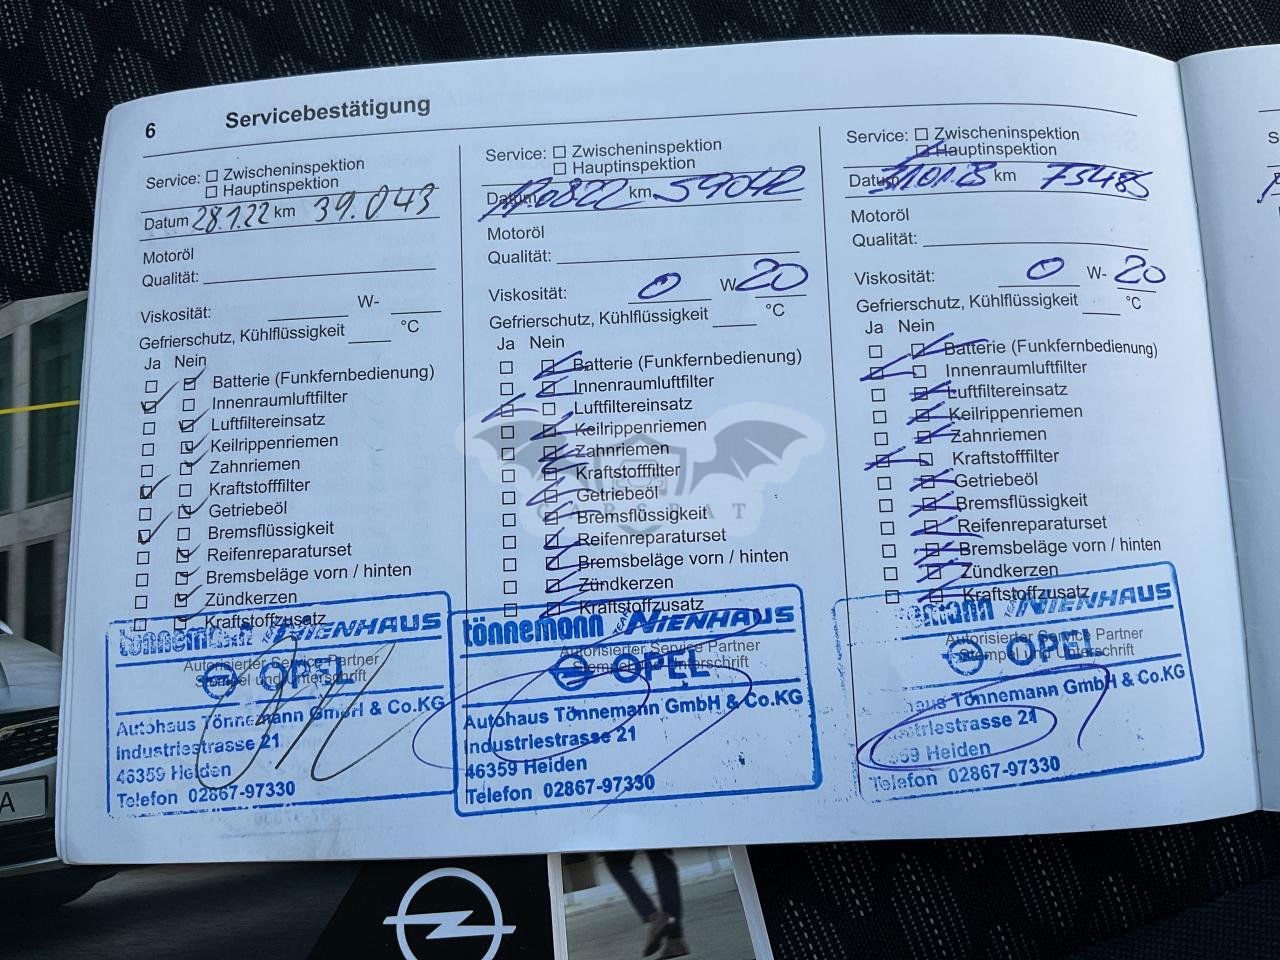 6 Servicebestätigung
Service: Zwischeninspektion
Hauptinspektion
Datum 28.1.22 km 39.043
Motoröl
Qualität:
Viskosität: W-
Gefrierschutz, Kühlflüssigkeit °C
Ja Nein
Batterie (Funkfernbedienung)
Innenraumluftfilter
Luftfiltereinsatz
Keilrippenriemen
Zahnriemen
Kraftstofffilter
Getriebeöl
Bremsflüssigkeit
Reifenreparaturset
Bremsbeläge vorn / hinten
Zündkerzen
Kraftstoffzusatz
tönnemann NIENHAUS
Autorisierter Service Partner
Stempel und Unterschrift
OPEL
Autohaus Tönnemann GmbH & Co.KG
Industriestrasse 21
46359 Heiden
Telefon 02867-97330
Service: Zwischeninspektion
Hauptinspektion
Datum km 59042
Motoröl
Qualität:
Viskosität: 0 W 20
Gefrierschutz, Kühlflüssigkeit °C
Ja Nein
Batterie (Funkfernbedienung)
Innenraumluftfilter
Luftfiltereinsatz
Keilrippenriemen
Zahnriemen
Kraftstofffilter
Getriebeöl
Bremsflüssigkeit
Reifenreparaturset
Bremsbeläge vorn / hinten
Zündkerzen
Kraftstoffzusatz
tönnemann TEAM NIENHAUS
Autorisierter Service Partner
Stempel und Unterschrift
OPEL
Autohaus Tönnemann GmbH & Co.KG
Industriestrasse 21
46359 Heiden
Telefon 02867-97330
Service: Zwischeninspektion
Hauptinspektion
Datum km 73485
Motoröl
Qualität:
Viskosität: 0 W- 20
Gefrierschutz, Kühlflüssigkeit °C
Ja Nein
Batterie (Funkfernbedienung)
Innenraumluftfilter
Luftfiltereinsatz
Keilrippenriemen
Zahnriemen
Kraftstofffilter
Getriebeöl
Bremsflüssigkeit
Reifenreparaturset
Bremsbeläge vorn / hinten
Zündkerzen
Kraftstoffzusatz
emann NIENHAUS
Autorisierter Service Partner
Stempel und Unterschrift
OPEL
haus Tönnemann GmbH & Co.KG
striestrasse 21
359 Heiden
Telefon 02867-97330
A